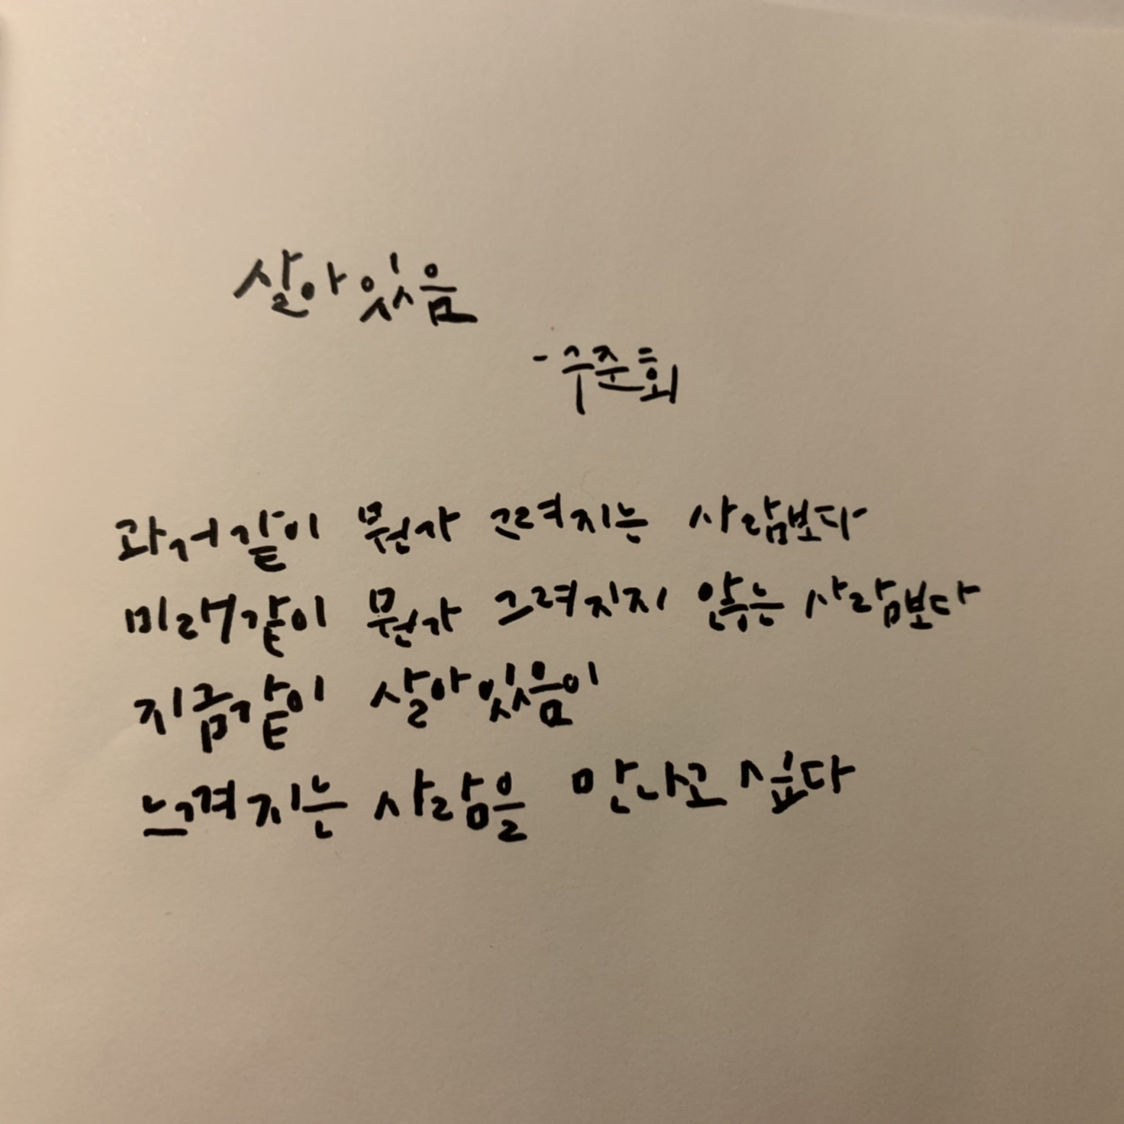 살아있음
- 수준회
과거같이 뭔가 그려지는 사람보다
미래같이 뭔가 그려지지 않는 사람보다
지금같이 살아있음이
느껴지는 사람을 만나고 싶다